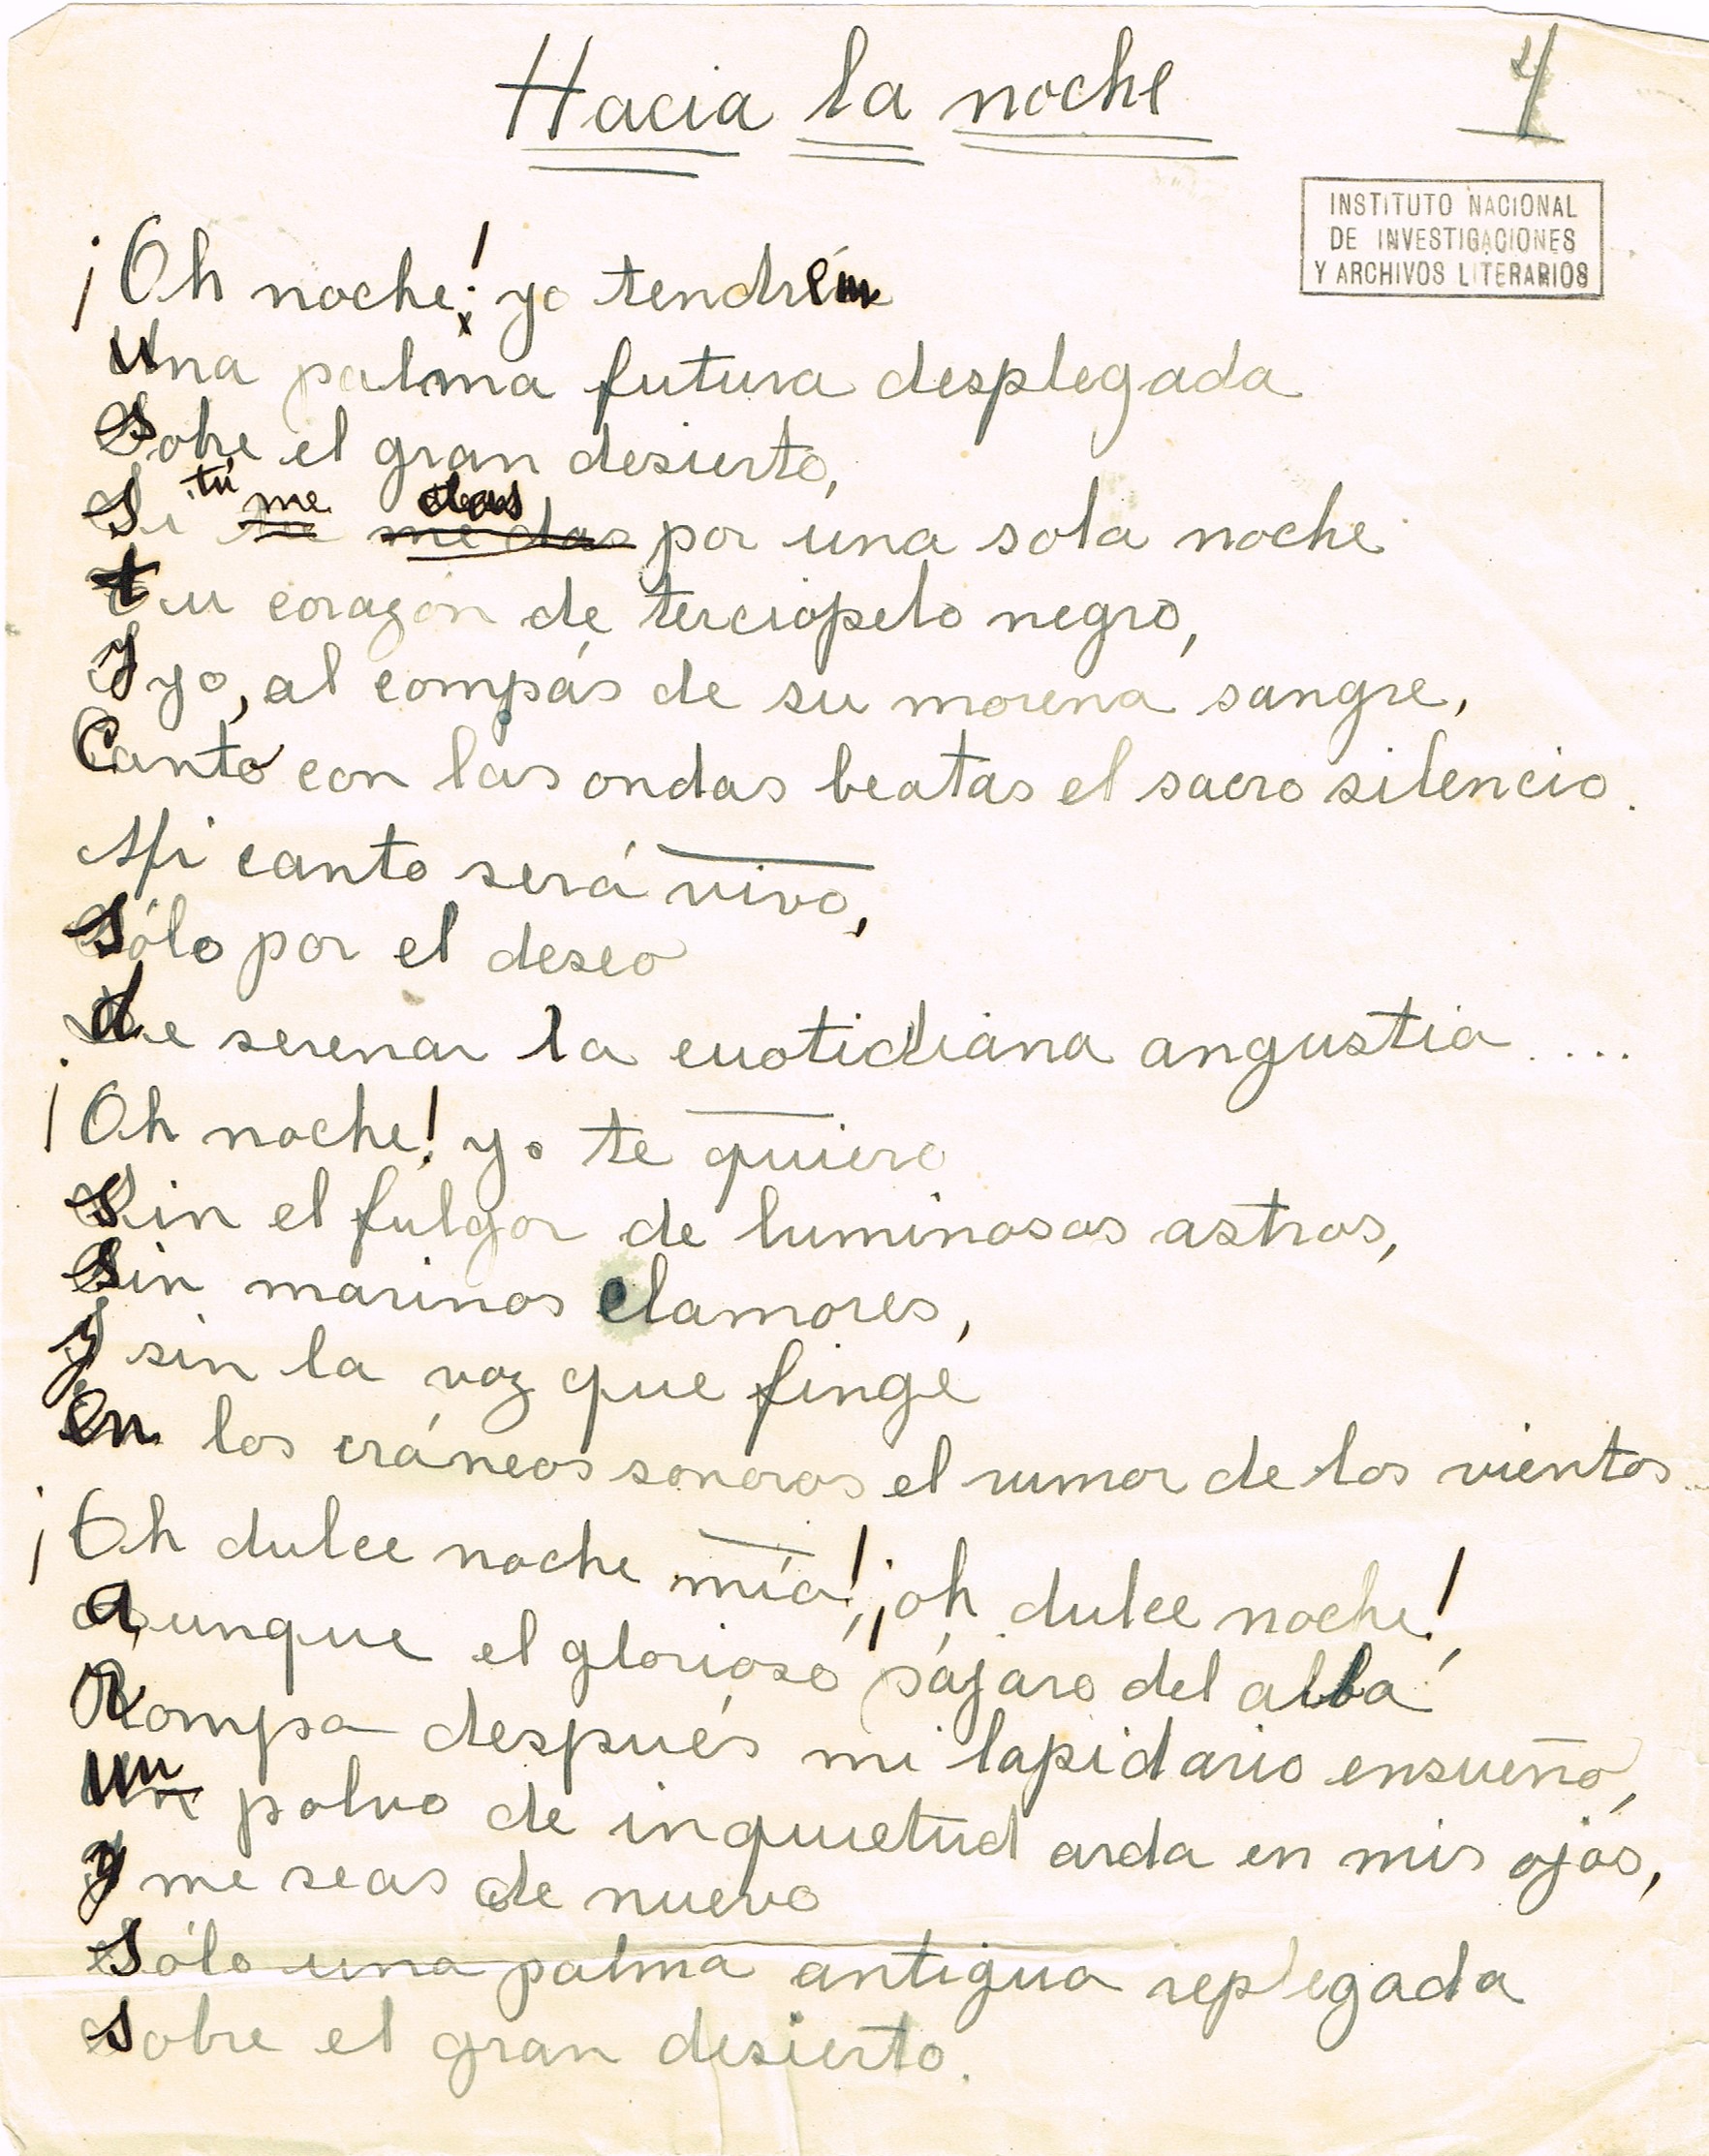 Hacia la noche
4
INSTITUTO NACIONAL
DE INVESTIGACIONES
Y ARCHIVOS LITERARIOS
¡Oh noche! yo tendré
una palma futura desplegada
sobre el gran desierto,
si tú me das por una sola noche
tu corazón de terciopelo negro,
y yo, al compás de su morena sangre,
Canto con las ondas beatas el sacro silencio.
Mi canto será vivo,
sólo por el deseo
de serenar la cuotidiana angustia....
¡Oh noche! yo te quiero
sin el fulgor de luminosos astros,
sin marinos clamores,
y sin la voz que finge
en los cráneos sonoros el rumor de los vientos...
¡Oh dulce noche mía!, ¡oh, dulce noche!
aunque el glorioso pájaro del alba
rompa después mi lapidario ensueño,
un polvo de inquietud arda en mis ojos,
y me seas de nuevo
sólo una palma antigua replegada
sobre el gran desierto.